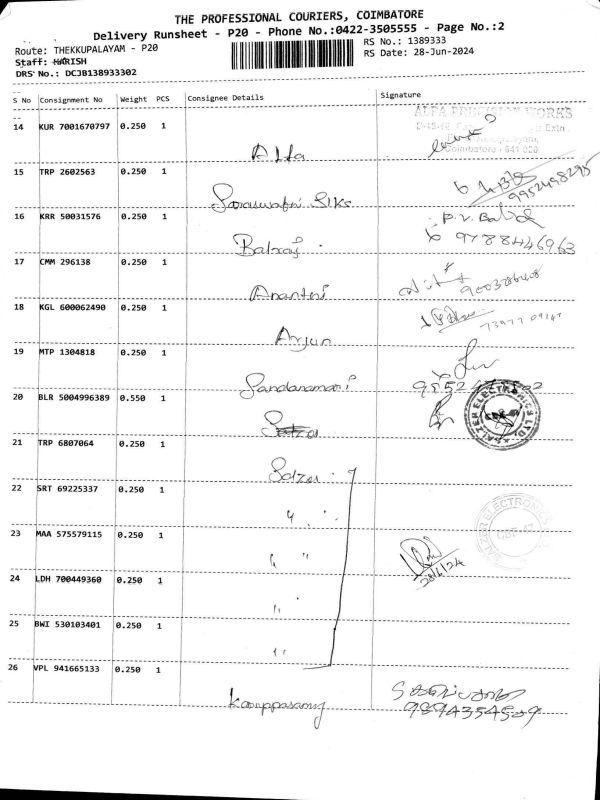 THE PROFESSIONAL COURIERS, COIMBATORE
Delivery Runsheet - P20 - Phone No.:0422-3505555 - Page No.:2
Route: THEKKUPALAYAM - P20
RS No.: 1389333
Staff: HARISH
RS Date: 28-Jun-2024
DRS No.: DCJB138933302
S No Consignment No Weight PCS Consignee Details Signature
ALFA PRECISION WORKS
14 KUR 7001670797 0.250 1
Coimbatore - 641 020
Alfa
15 TRP 2602563 0.250 1
9952498295
Saraswathi Silks
16 KRR 50031576 0.250 1
P.V. Balraj
Balraj 9788446963
17 CMM 296138 0.250 1
Ananthi
18 KGL 600062490 0.250 1
Arjun
19 MTP 1304818 0.250 1
20 BLR 5004996389 0.550 1
SALZER ELECTRONICS LTD
21 TRP 6807064 0.250 1
Salzer
22 SRT 69225337 0.250 1
SALZER ELECTRONICS
" "
23 MAA 575579115 0.250 1
" "
28/6/24
24 LDH 700449360 0.250 1
" "
25 BWI 530103401 0.250 1
" "
26 VPL 941665133 0.250 1
Karuppasamy